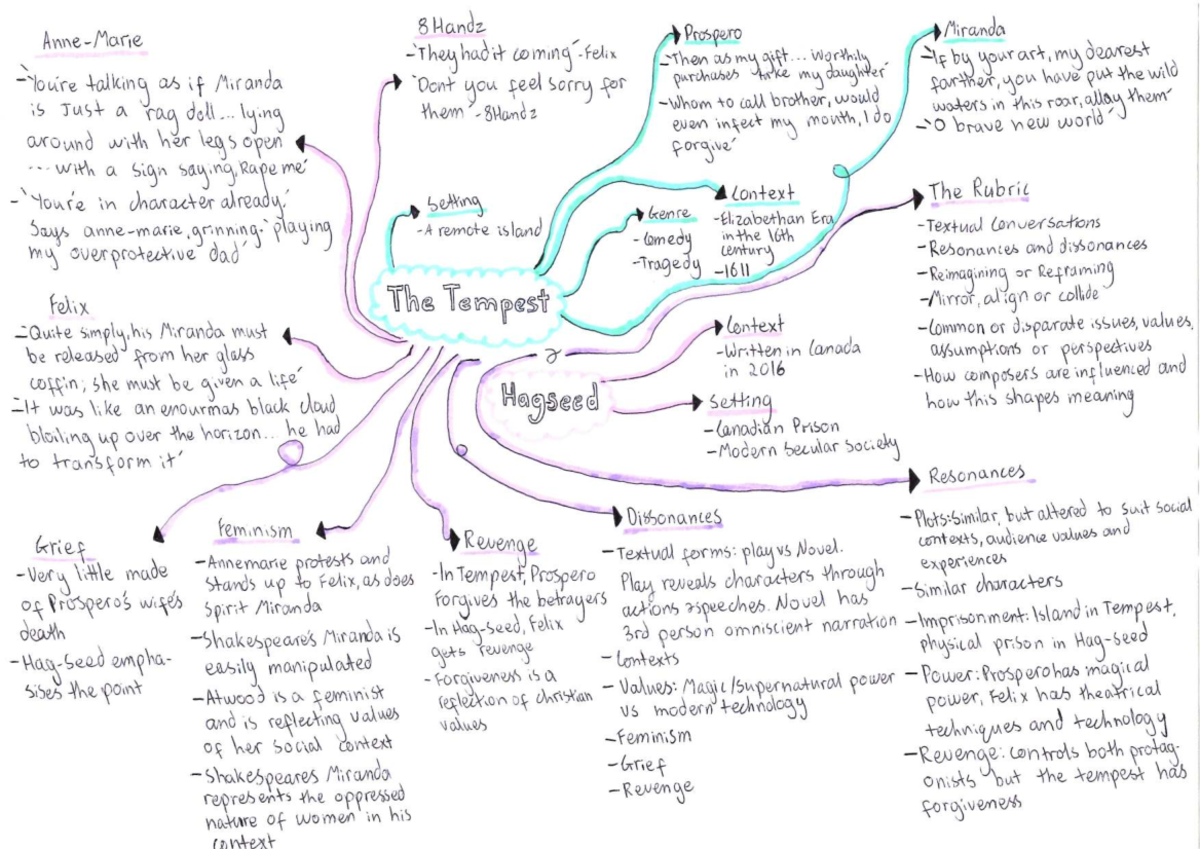 Anne-Marie
-'You're talking as if Miranda
is just a rag doll... lying
around with her legs open
... with a sign saying, Rape me'
-'You're in character already.'
Says anne-marie, grinning. 'playing
my overprotective dad'
Felix
-Quite simply, his Miranda must
be released from her glass
coffin; she must be given a life'
-It was like an enourmas black cloud
bloiling up over the horizon... he had
to transform it'
8 Handz
-'They had it coming'-Felix
'Don't you feel sorry for
them' -8Handz
Setting
-A remote island
The Tempest
Prospero
-'Then as my gift... worthily
purchases take my daughter'
-Whom to call brother, would
even infect my mouth, I do
forgive'
Context
-Elizabethan Era
in the 16th
century
-1611
Genre
-Comedy
-Tragedy
Miranda
-'If by your art, my dearest
farther, you have put the wild
waters in this roar, allay them'
-'O brave new world'
The Rubric
-Textual Conversations
-Resonances and dissonances
-Reimagining or Reframing
-Mirror, align or collide
-Common or disparate issues, values,
assumptions or perspectives
-How composers are influenced and
how this shapes meaning
Hagseed
Context
-Written in Canada
in 2016
Setting
-Canadian Prison
-Modern Secular Society
Grief
-Very little made
of Prospero's wife's
death
-Hag-Seed empha-
sises the point
Feminism
-Annemarie protests and
stands up to Felix, as does
Spirit Miranda
-Shakespeare's Miranda is
easily manipulated
-Atwood is a feminist
and is reflecting values
of her social context
-Shakespeares Miranda
represents the oppressed
nature of women in his
context
Revenge
-In Tempest, Prospero
Forgives the betrayers
-In Hag-Seed, Felix
gets revenge
-Forgiveness is a
reflection of christian
values
Dissonances
-Textual forms: play vs Novel.
Play reveals characters through
actions & speeches. Novel has
3rd person omniscient narration
-Contexts
-Values: Magic/supernatural power
vs modern technology
-Feminism
-Grief
-Revenge
Resonances
-Plots: Similar, but altered to suit social
contexts, audience values and
experiences
-Similar characters
-Imprisonment: Island in Tempest,
physical prison in Hag-Seed
-Power: Prospero has magical
power, Felix has theatrical
techniques and technology
-Revenge: controls both protag-
onists but the tempest has
forgiveness